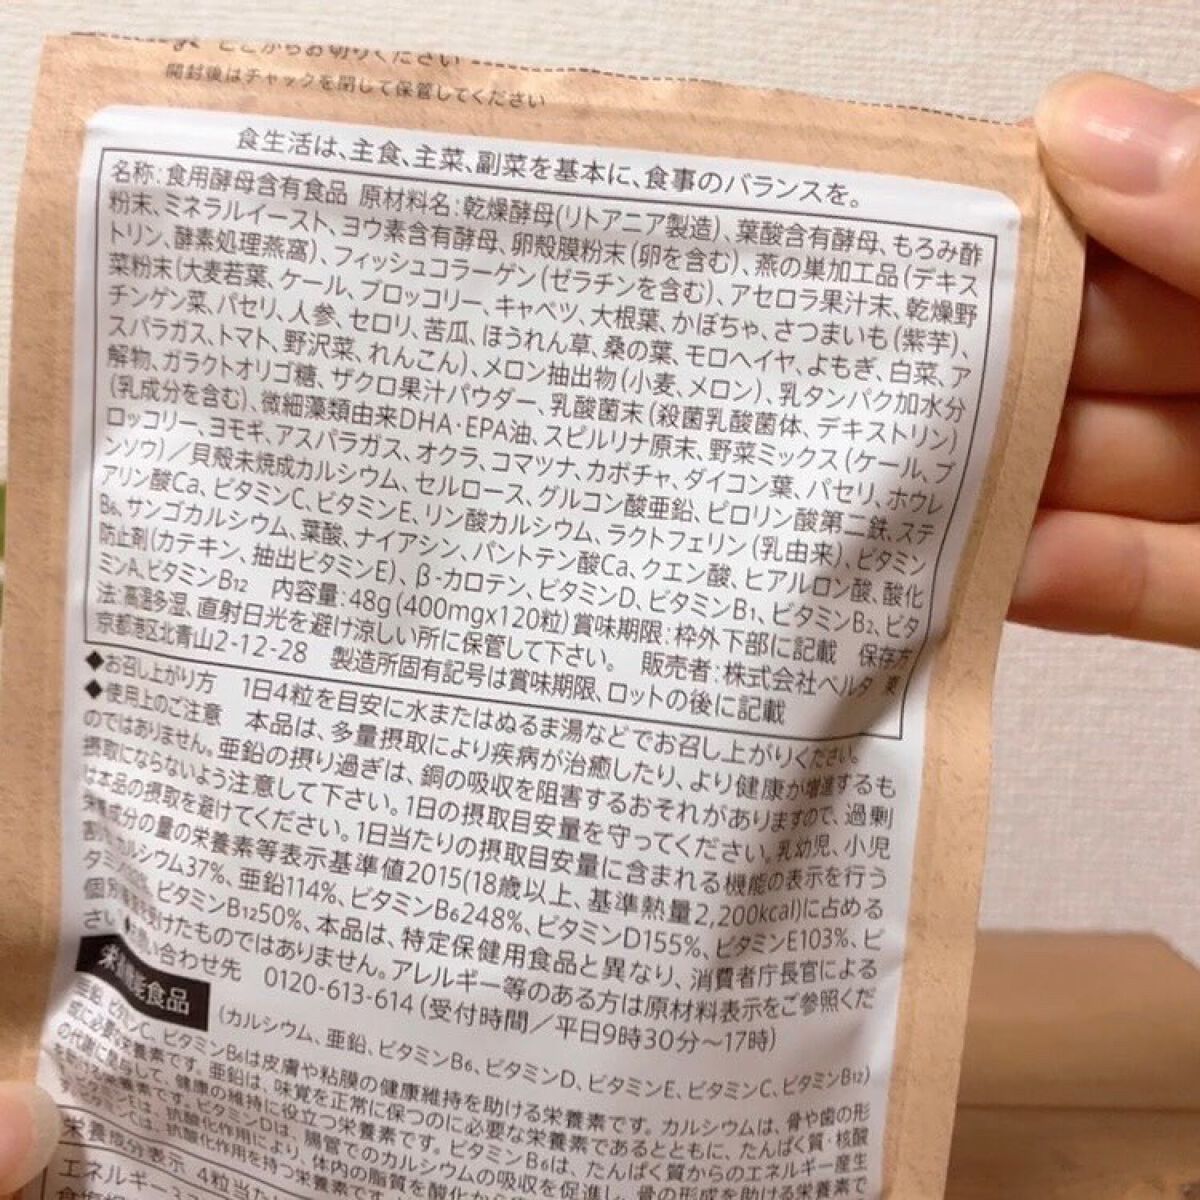 ここからお切りください
開封後はチャックを閉じて保管してください
食生活は、主食、主菜、副菜を基本に、食事のバランスを。
名称:食用酵母含有食品 原材料名:乾燥酵母(リトアニア製造)、葉酸含有酵母、もろみ酢
粉末、ミネラルイースト、ヨウ素含有酵母、卵殻膜粉末(卵を含む)、燕の巣加工品(デキス
トリン、酵素処理燕窩)、フィッシュコラーゲン(ゼラチンを含む)、アセロラ果汁末、乾燥野
菜粉末(大麦若葉、ケール、ブロッコリー、キャベツ、大根葉、かぼちゃ、さつまいも(紫芋)、
チンゲン菜、パセリ、人参、セロリ、苦瓜、ほうれん草、桑の葉、モロヘイヤ、よもぎ、白菜、ア
スパラガス、トマト、野沢菜、れんこん)、メロン抽出物(小麦、メロン)、乳タンパク加水分
解物、ガラクトオリゴ糖、ザクロ果汁パウダー、乳酸菌末(殺菌乳酸菌体、デキストリン)
(乳成分を含む)、微細藻類由来DHA・EPA油、スピルリナ原末、野菜ミックス(ケール、ブ
ロッコリー、ヨモギ、アスパラガス、オクラ、コマツナ、カボチャ、ダイコン葉、パセリ、ホウレ
ンソウ)/貝殻未焼成カルシウム、セルロース、グルコン酸亜鉛、ピロリン酸第二鉄、ステ
アリン酸Ca、ビタミンC、ビタミンE、リン酸カルシウム、ラクトフェリン(乳由来)、ビタミン
B6、サンゴカルシウム、葉酸、ナイアシン、パントテン酸Ca、クエン酸、ヒアルロン酸、酸化
防止剤(カテキン、抽出ビタミンE)、β-カロテン、ビタミンD、ビタミンB1、ビタミンB2、ビタ
ミンA、ビタミンB12 内容量:48g(400mgx120粒) 賞味期限:枠外下部に記載 保存方
法:高温多湿、直射日光を避け涼しい所に保管して下さい。 販売者:株式会社ベルタ 東
京都港区北青山2-12-28 製造所固有記号は賞味期限、ロットの後に記載
◆お召し上がり方 1日4粒を目安に水またはぬるま湯などでお召し上がりください。
◆使用上のご注意 本品は、多量摂取により疾病が治癒したり、より健康が増進するも
のではありません。亜鉛の摂り過ぎは、銅の吸収を阻害するおそれがありますので、過剰
摂取にならないよう注意して下さい。1日の摂取目安量を守ってください。乳幼児、小児
は本品の摂取を避けてください。1日当たりの摂取目安量に含まれる機能の表示を行う
栄養成分の量の栄養素等表示基準値2015(18歳以上、基準熱量2,200kcal)に占める
割合:カルシウム37%、亜鉛114%、ビタミンB6248%、ビタミンD155%、ビタミンE103%、ビ
タミン ビタミンB1250%、本品は、特定保健用食品と異なり、消費者庁長官による
個別審査を受けたものではありません。アレルギー等のある方は原材料表示をご参照くだ
さい◆お問い合わせ先 0120-613-614(受付時間/平日9時30分〜17時)
栄養機能食品 (カルシウム、亜鉛、ビタミンB6、ビタミンD、ビタミンE、ビタミンC、ビタミンB12)
亜鉛、ビタミンC、ビタミンB6は皮膚や粘膜の健康維持を助ける栄養素です。カルシウムは、骨や歯の形
成に必要な栄養素です。亜鉛は、味覚を正常に保つのに必要な栄養素であるとともに、たんぱく質・核酸
の代謝に関与して、健康の維持に役立つ栄養素です。ビタミンB6は、たんぱく質からのエネルギー産生
を助ける栄養素です。ビタミンDは、腸管でのカルシウムの吸収を促進し、骨の形成を助ける栄養素で
す。ビタミンEは、抗酸化作用により、体内の脂質を酸化から
ビタミンCは、抗酸化作用を持つ栄養素です。
栄養成分表示 4粒当た
エネルギー